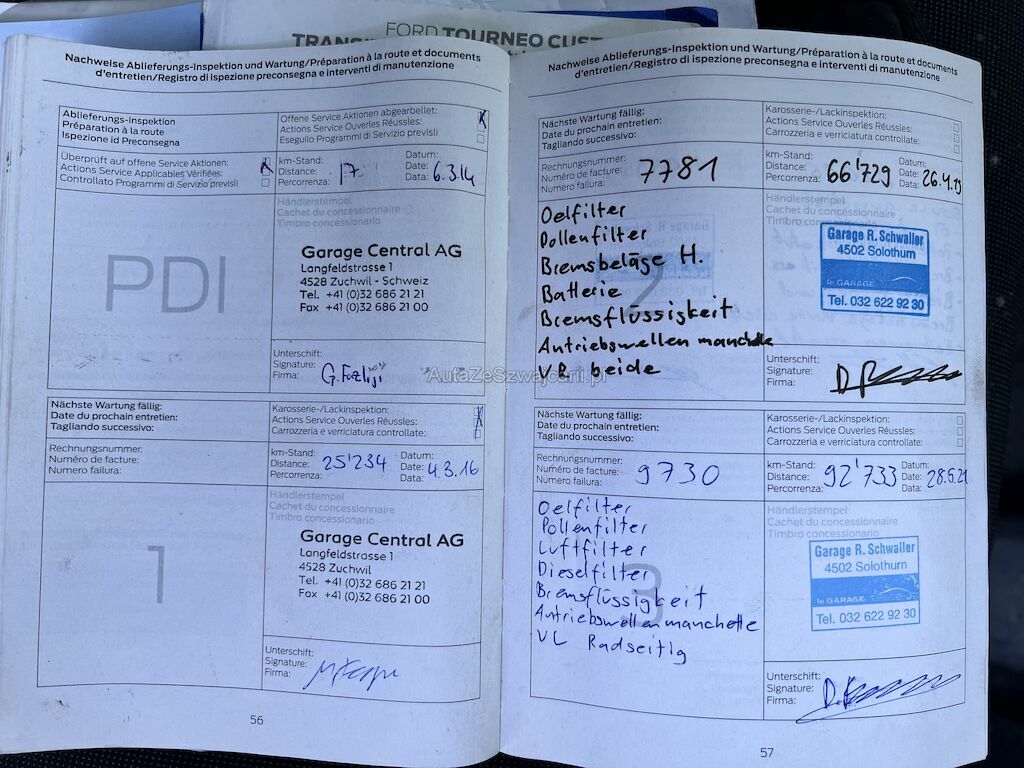 FORD TOURNEO CUST
TRANSI
Nachweise Ablieferungs-Inspektion und Wartung/Préparation à la route et documents
d'entretien/Registro di ispezione preconsegna e interventi di manutenzione
Ablieferungs-Inspektion
Préparation à la route
Ispezione id Preconsegna
Offene Service Aktionen abgearbeitet:
Actions Service Ouverles Réusses:
Eseguilo Programmi di Servizio previsli
Überprüft auf offene Service Aktionen:
Actions Service Applicables Vérifiées:
Controllato Programmi di Servizio previsli
km-Stand:
Distance:
Percorrenza:
17
Datum:
Date:
Data:
6.3.14
PDI
Händlerstempel
Cachet du concessionnaire
Timbro concessionario
Garage Central AG
Langfeldstrasse 1
4528 Zuchwil - Schweiz
Tel. +41 (0)32 686 21 21
Fax +41 (0)32 686 21 00
Unterschift:
Signature:
Firma:
Nächste Wartung fällig:
Date du prochain entretien:
Tagliando successivo:
Karosserie-/Lackinspektion:
Actions Service Ouverles Réusses:
Carrozzeria e verriciatura controllate:
Rechnungsnummer:
Numéro de facture:
Numero failura:
km-Stand:
Distance:
Percorrenza:
25'234
Datum:
Date:
Data:
4.3.16
1
Händlerstempel
Cachet du concessionnaire
Timbro concessionario
Garage Central AG
Langfeldstrasse 1
4528 Zuchwil
Tel. +41 (0)32 686 21 21
Fax +41 (0)32 686 21 00
Unterschift:
Signature:
Firma:
56
Nachweise Ablieferungs-Inspektion und Wartung/Préparation à la route et documents
d'entretien/Registro di ispezione preconsegna e interventi di manutenzione
Nächste Wartung fällig:
Date du prochain entretien:
Tagliando successivo:
Karosserie-/Lackinspektion:
Actions Service Ouverles Réusses:
Carrozzeria e verriciatura controllate:
Rechnungsnummer:
Numéro de facture:
Numero failura:
7781
km-Stand:
Distance:
Percorrenza:
66'729
Datum:
Date:
Data:
26.4.19
2
Oelfilter
Pollenfilter
Bremsbeläge H.
Batterie
Bremsflüssigkeit
Antriebswellen manchette
VR beide
Händlerstempel
Cachet du concessionnaire
Timbro concessionario
Garage R. Schwaller
4502 Solothurn
le GARAGE
Tel. 032 622 92 30
Unterschift:
Signature:
Firma:
AutaZeSzwajcarii.pl
Nächste Wartung fällig:
Date du prochain entretien:
Tagliando successivo:
Karosserie-/Lackinspektion:
Actions Service Ouverles Réusses:
Carrozzeria e verriciatura controllate:
Rechnungsnummer:
Numéro de facture:
Numero failura:
9730
km-Stand:
Distance:
Percorrenza:
92'733
Datum:
Date:
Data:
28.5.21
3
Oelfilter
Pollenfilter
Luftfilter
Dieselfilter
Bremsflüssigkeit
Antriebswellenmanchette
VL Radseitig
Händlerstempel
Cachet du concessionnaire
Timbro concessionario
Garage R. Schwaller
4502 Solothurn
le GARAGE
Tel. 032 622 92 30
Unterschift:
Signature:
Firma:
57